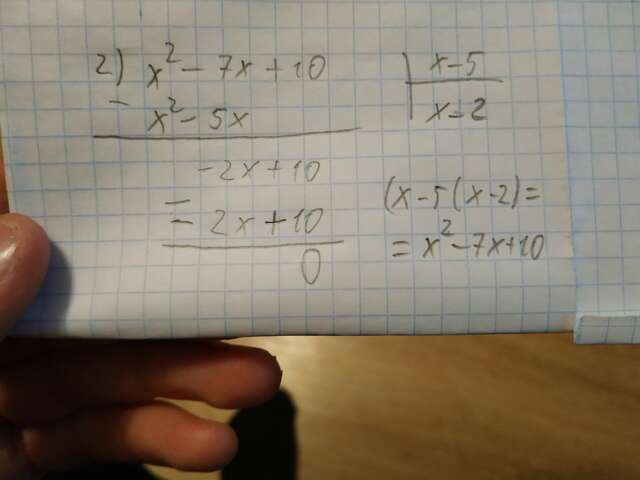 2) x² - 7x + 10 | x - 5
- x² - 5x x - 2
- 2x + 10
- - 2x + 10
0
(x - 5(x - 2) =
= x² - 7x + 10